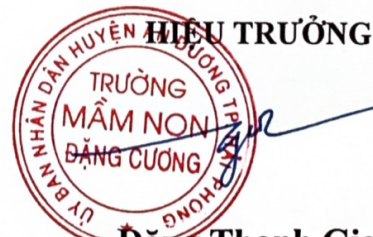 HIỆU TRƯỞNG
ỦY BAN NHÂN DÂN HUYỆN AN DƯƠNG TP HẢI PHÒNG
TRƯỜNG
MẦM NON
ĐẶNG CƯƠNG
Thanh